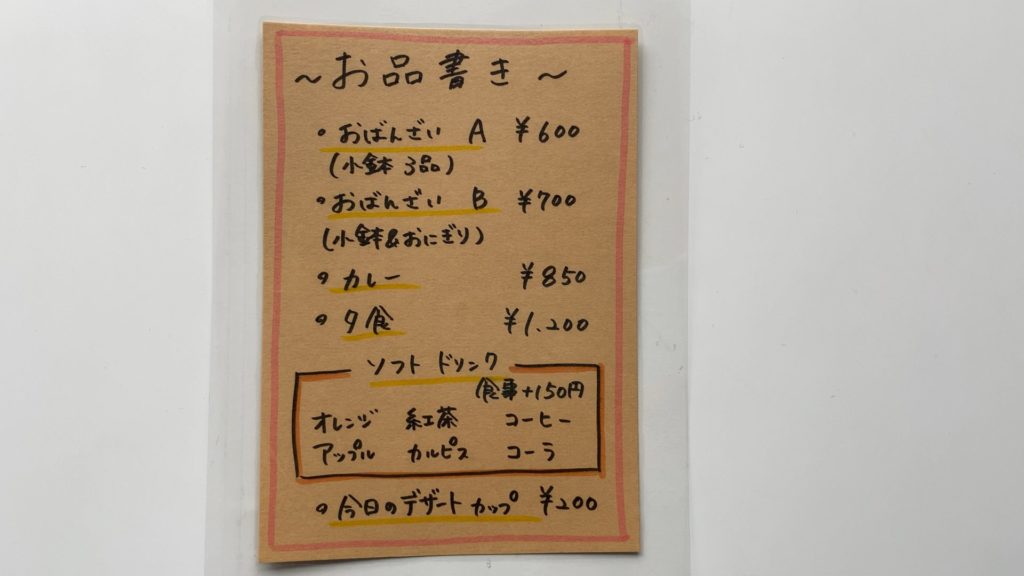 ～お品書き～
・おばんざい A ¥600
(小鉢 3品)
・おばんざい B ¥700
(小鉢&おにぎり)
・カレー ¥850
・夕食 ¥1.200
ソフト ドリンク
食事+150円
オレンジ 紅茶 コーヒー
アップル カルピス コーラ
・今日のデザートカップ ¥200